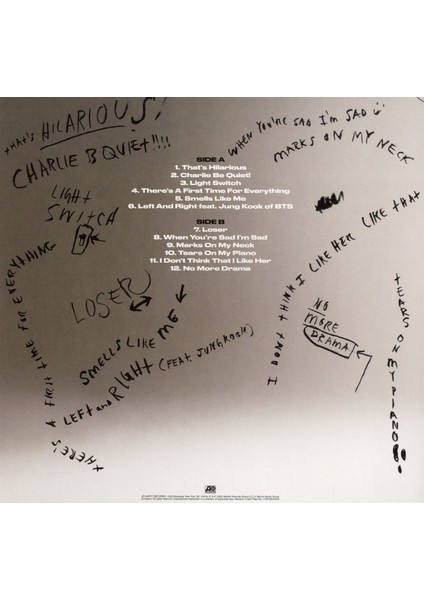 THAT'S HILARIOUS!
CHARLIE B QUIET!!!!
LIGHT
SWITCH
WHEN YOU'RE SAD I'M SAD
MARKS ON MY NECK
SIDE A
1. That's Hilarious
2. Charlie Be Quiet!
3. Light Switch
4. There's A First Time For Everything
5. Smells Like Me
6. Left And Right feat. Jung Kook of BTS
SIDE B
7. Loser
8. When You're Sad I'm Sad
9. Marks On My Neck
10. Tears On My Piano
11. I Don't Think That I Like Her
12. No More Drama
THERE'S A FIRST TIME FOR EVERYTHING
LOSER
SMELLS LIKE ME
LEFT and RIGHT (FEAT. JUNGKOOK)
I DONT THINK I LIKE HER LIKE THAT
NO
MORE
DRAMA
TEARS ON MY PIANO!!